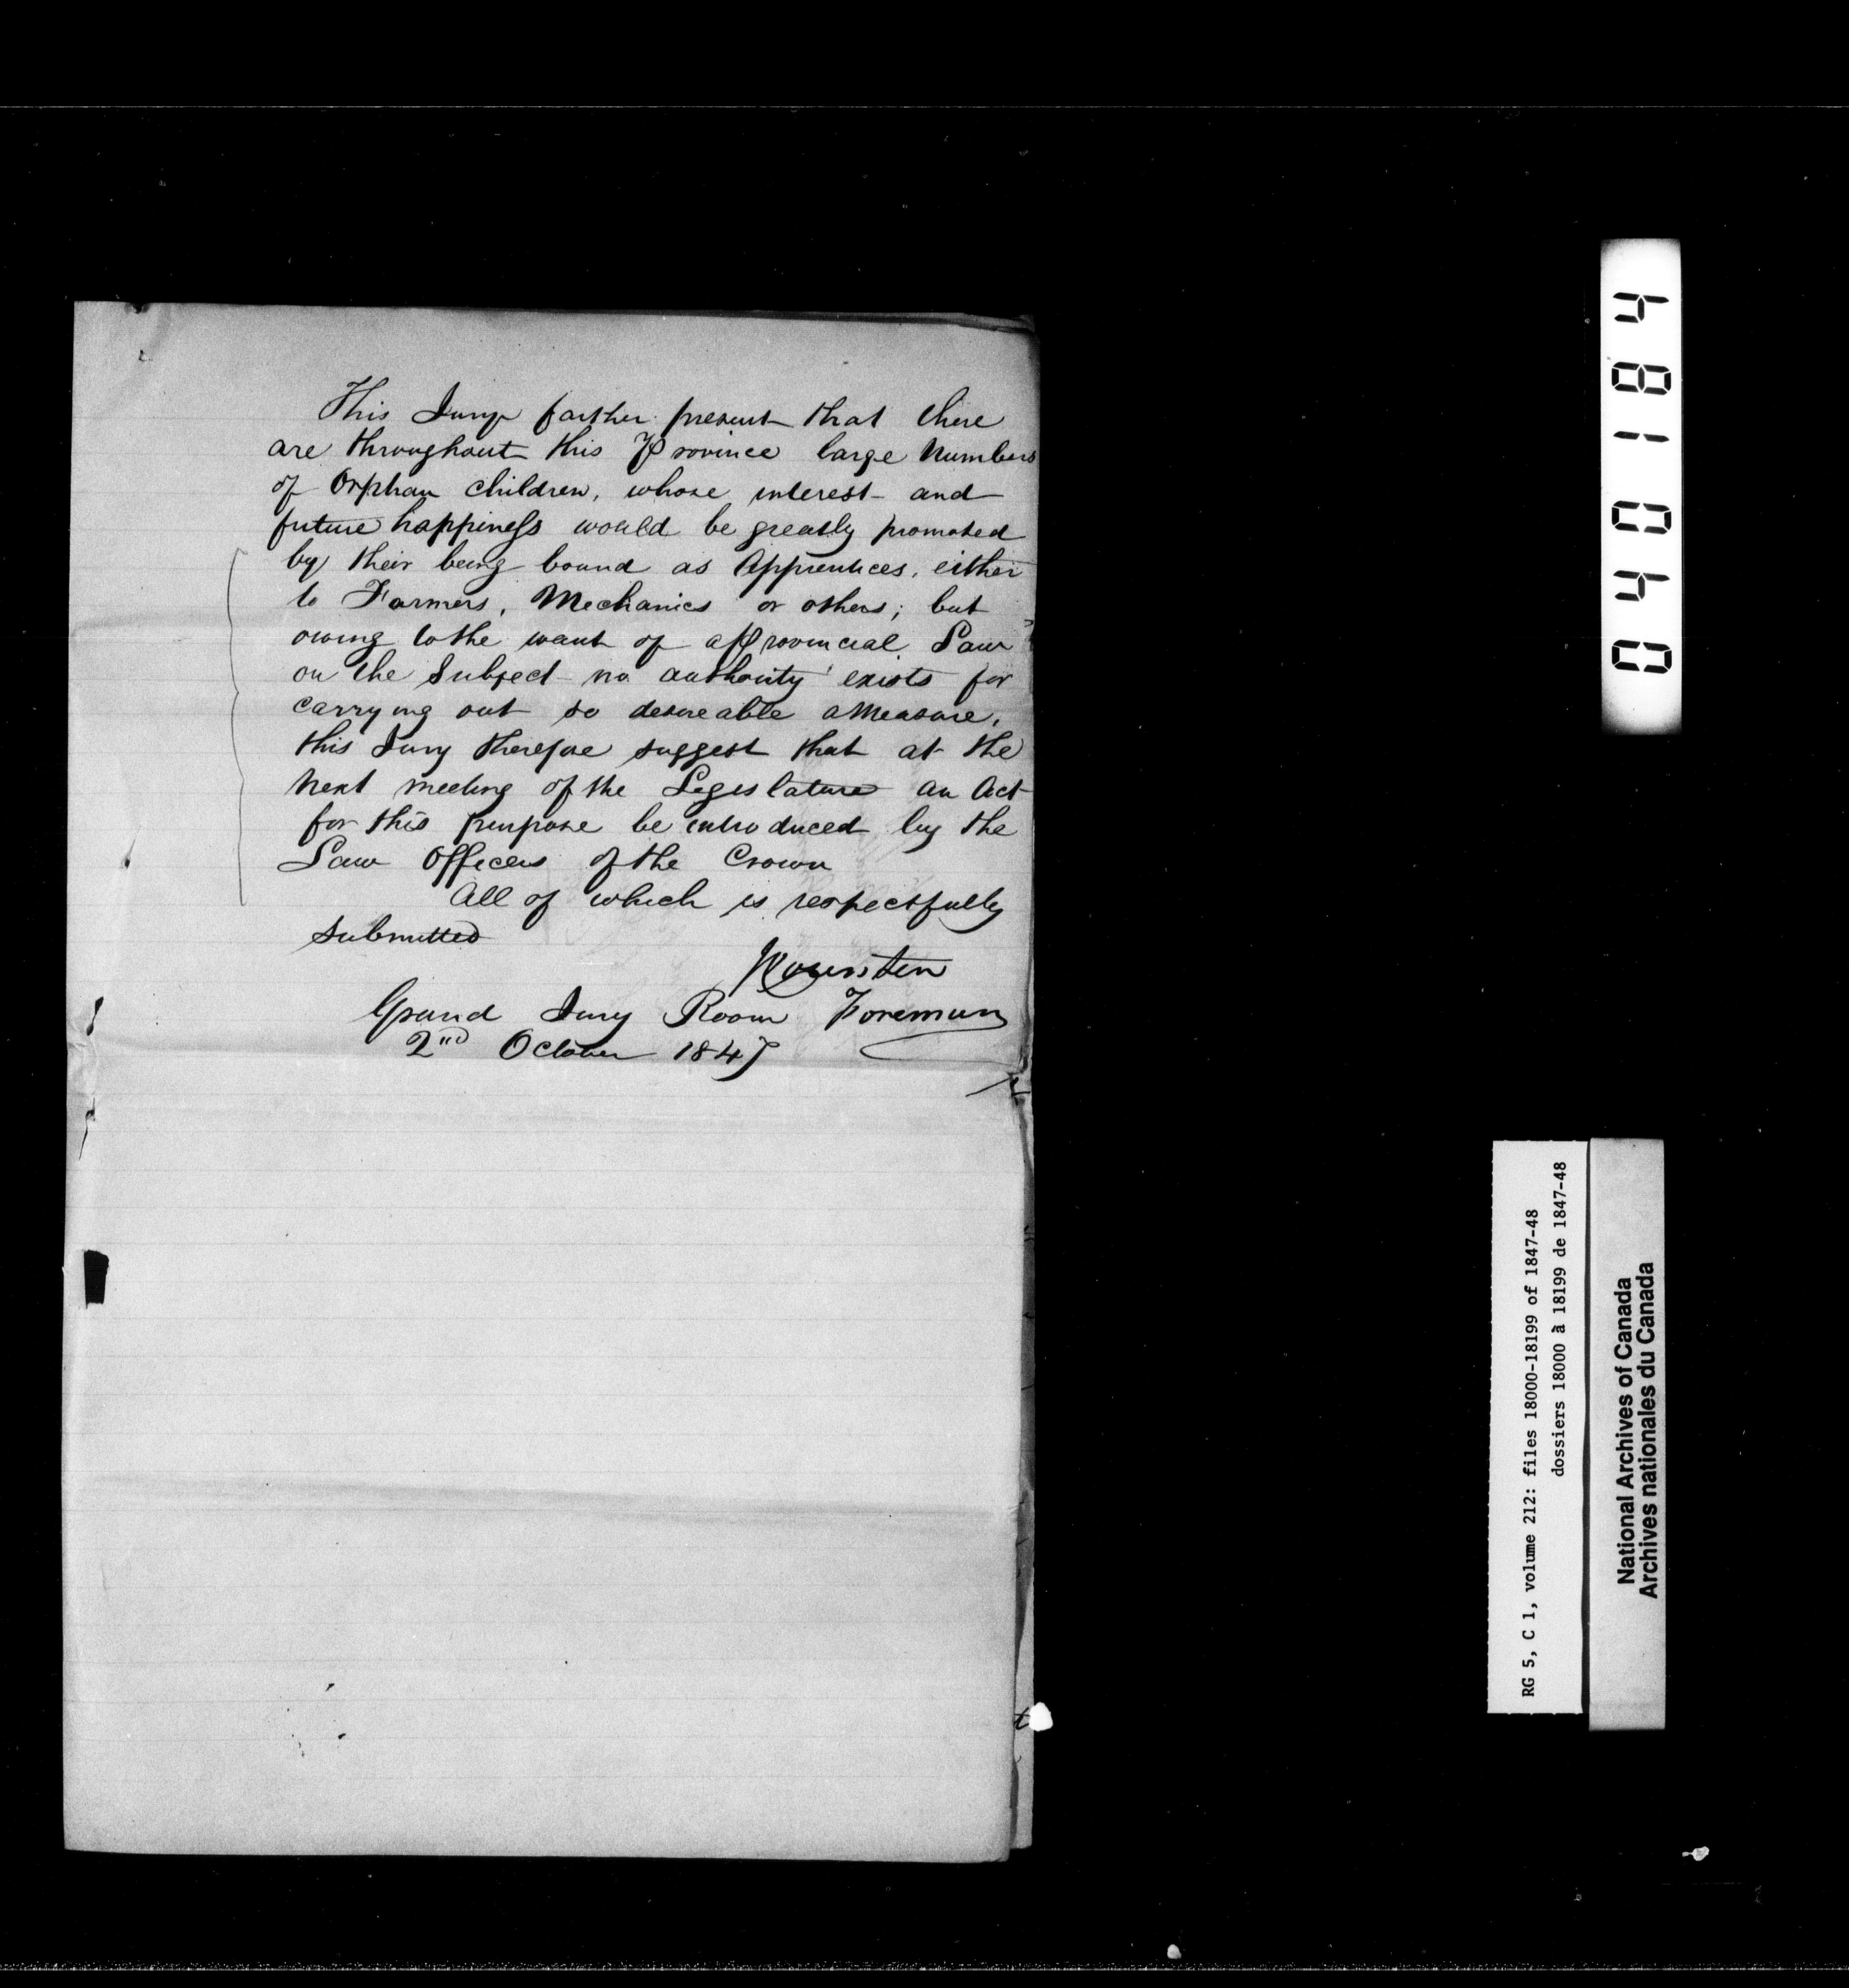 This Jury farther present that there
are throughout this Province large Numbers
of Orphan children, whose interest and
future happiness would be greatly promoted
by their being bound as Apprentices, either
to Farmers, Mechanics or others; but
owing to the want of a Provincial Law
on the Subject no authority exists for
carrying out so desireable a Measure,
this Jury therefore suggest that at the
Next meeting of the Legislature an Act
for this purpose be introduced by the
Law Officers of the Crown
All of which is respectfully
submitted
Grand Jury Room Foreman
2nd October 1847
040184
RG 5, C 1, volume 212: files 18000-18199 of 1847-48
dossiers 18000 à 18199 de 1847-48
National Archives of Canada
Archives nationales du Canada